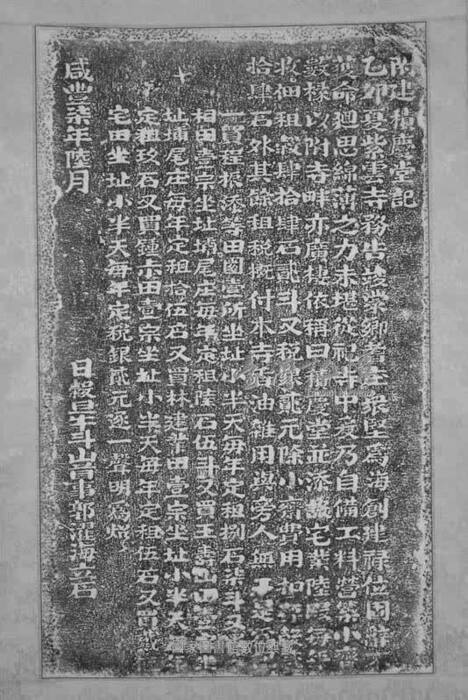 建積慶堂記
乙卯夏紫雲寺務告竣眾鄉耆眾堅為海創建祿位固辭
命廻思綿薄之力未堪從祀寺中爰乃自備工料營築小
數椽以附寺畔亦廣棲依稱曰積慶堂並添宅業陸段每
收佃租穀肆拾肆石貳斗又稅銀貳元除小齋費用扣
拾肆石外其餘租稅概付本寺香油雜用與旁人無干是
一買程振添等田園壹所坐址小半天每年定租捌石柒斗又
相田壹宗坐址埔尾庄每年定租陸石伍斗又買王壽山田壹
址埔尾庄每年定租拾伍石又買林建田壹宗坐址小半天
定租玖石又買鍾示田壹宗坐址小半天每年定租伍石又買
宅田坐址小半天每年定稅銀貳元逐一聲明為炤
咸豐柒年陸月 日穀旦斗山首事郭濯海立石